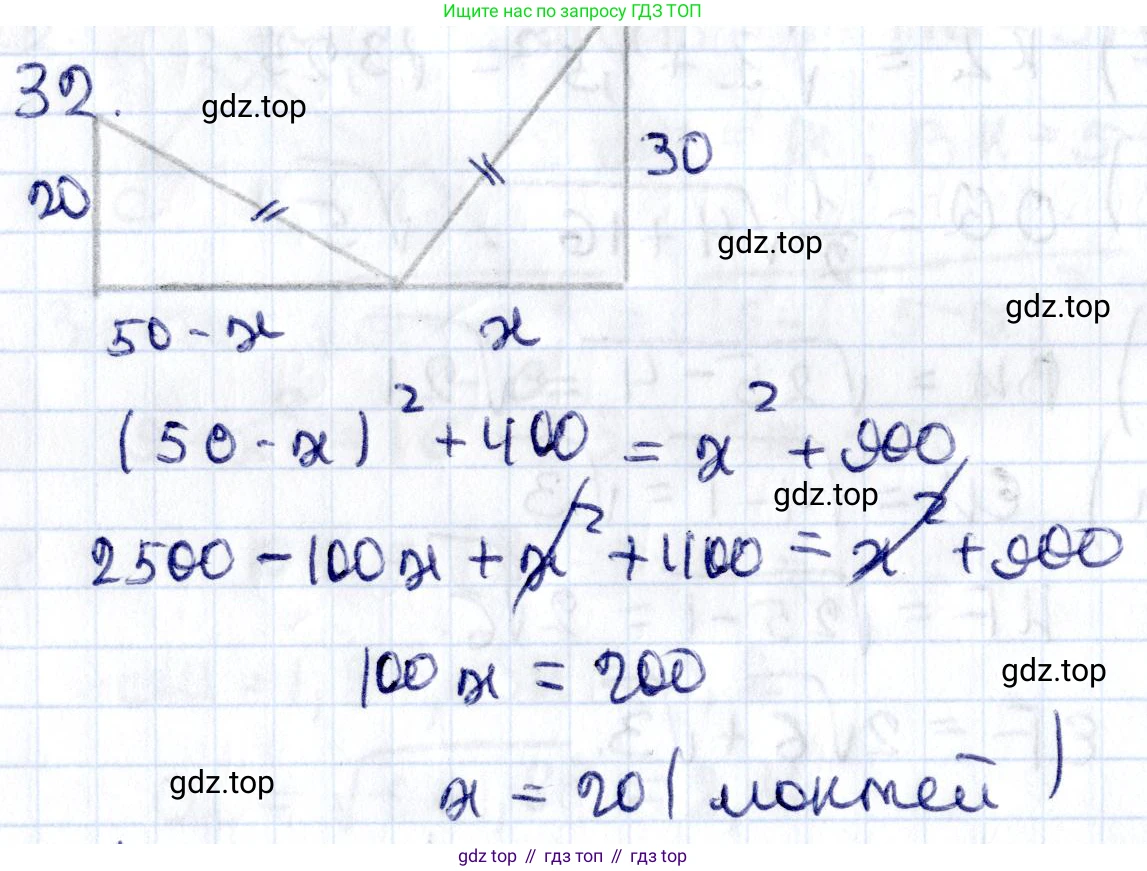 Ищите нас по запросу ГДЗ ТОП
32.
gdz.top
20
30
gdz.top
gdz.top
50 - x
x
(50 - x)² + 400 = x² + 900
gdz.top
2500 - 100x + x² + 400 = x² + 900
100x = 200
gdz.top
gdz.top
x = 20 (локтей)
gdz.top // гдз топ // gdz.top